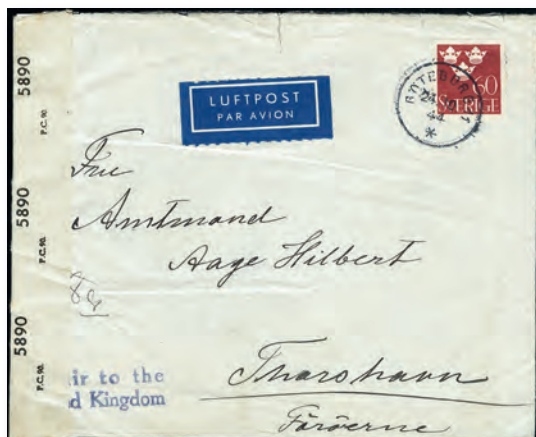 5890
P.C. 90.
5890
P.C. 90.
5890
P.C. 90.
LUFTPOST
PAR AVION
GÖTEBORG 1
24
44
*
60
SVERIGE
Fru
Amtmand
Aage Hilbert
Thorshavn
Färöerne
ir to the
d Kingdom